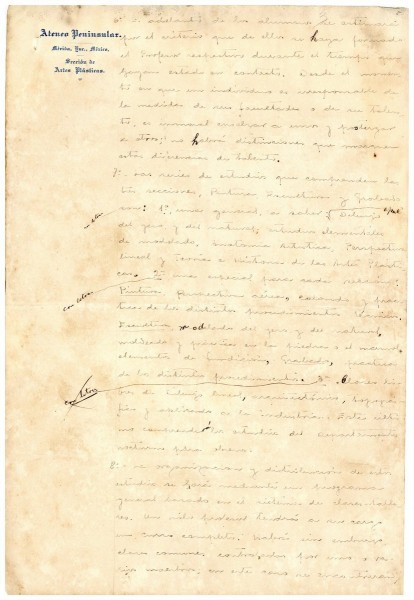 Ateneo Peninsular.
Mérida, Yuc., México.
Sección de
Artes Plásticas.
6º El adelanto de los alumnos se estimará
por el criterio que de ellos se haya formado
el Profesor respectivo durante el tiempo que
hayan estado en contacto. Desde el momen-
to en que un individuo es irresponsable de
la medida de sus facultades o de su talen-
to, es inmoral exaltar a unos y postergar
a otros; no habrá distinciones que marquen
estas diferencias de talento.
7º Las series de estudios que comprenden las
tres secciones, Pintura Escultura y Grabado
son: 1ª una general, a saber: Dibujo
del yeso y del natural, estudios elementales
de modelado, Anatomía Artística, Perspectiva
lineal y Teoría e historia de las Artes Plásti-
cas. 2ª una especial para cada sección:
Pintura, Perspectiva aérea, colorido y prác-
ticas de los distintos procedimientos
Escultura, modelado del yeso y del natural,
y prácticas en la piedra y el mármol,
elementos de fundición, Grabado, práctica
de los distintos procedimientos. 3ª Clases li-
bres de dibujo lineal, arquitectónico,
y aplicado a la industria. Esta últi-
ma comprenderá los estudios del Departamento
nocturno para obreros.
8º La organización y distribución de estos
estudios se hará mediante un programa
general basado en el sistema de clases-talle-
res. Un solo profesor tendrá a su cargo
un curso completo. Habrá sin embargo,
clases comunes, controladas por uno o va-
rios maestros; en este caso